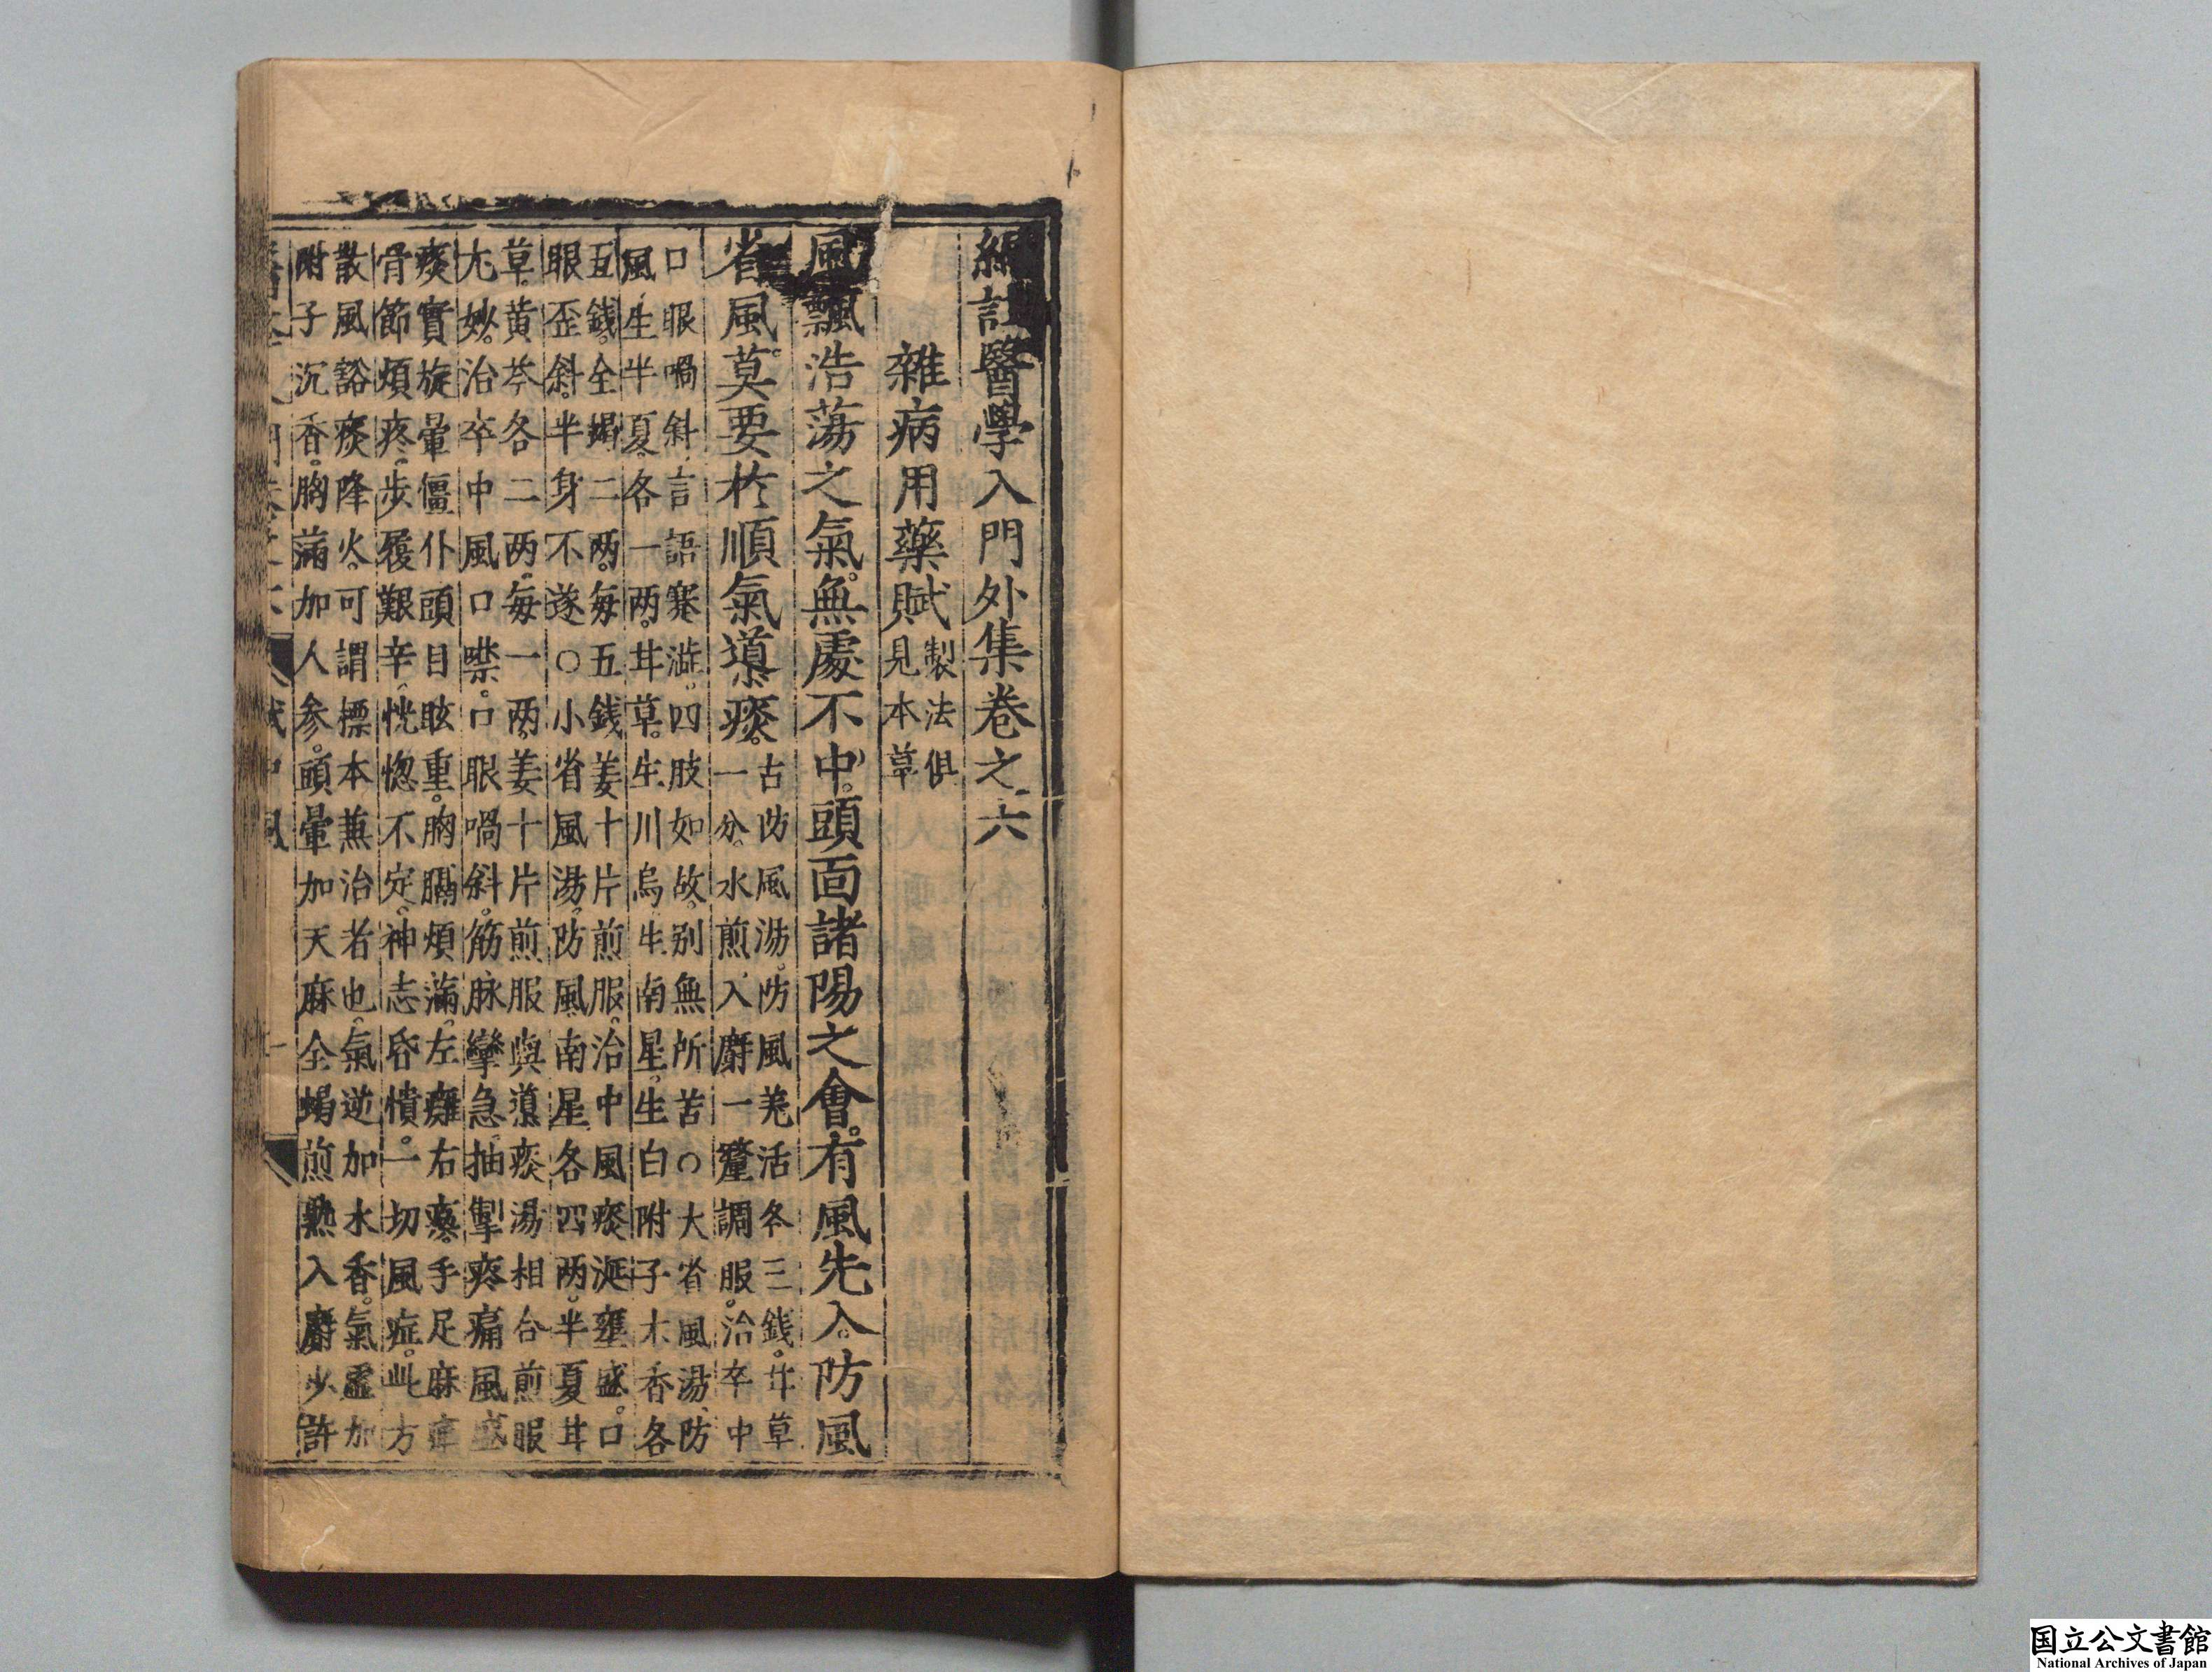 編註醫學入門外集卷之六
雜病用藥賦
製法俱
見本草
風飄浩蕩之氣。無處不中。頭面諸陽之會。有風先入。防風
省風。莫要於順氣導痰。
古防風湯。防風羌活各三錢。甘草
一分。水煎入麝一釐調服。治卒中
口眼喎斜。言語蹇澁。四肢如故。別無所苦○大省風湯。防
風。生半夏。各一兩。甘草。生川烏生南星。生白附子木香各
五錢。全蝎二兩。每五錢姜十片煎服。治中風痰涎壅盛。口
眼歪斜。半身不遂○小省風湯。防風南星各四兩。半夏甘
草。黃芩各二兩。每一兩。姜十片煎服與導痰湯相合煎服
尤妙。治卒中風口噤。口眼喎斜。筋脉攣急。抽掣疼痛風盛
痰實旋暈僵仆頭目眩重。胸膈煩滿。左癱右瘓。手足麻痺
骨節煩疼。步履艱辛。恍惚不定。神志昏憒。一切風症。此方
散風豁痰降火。可謂標本兼治者也。氣逆加木香。氣虛加
附子沉香。胸滿加人參。頭暈加天麻全蝎煎熟入麝少許
国立公文書館
National Archives of Japan